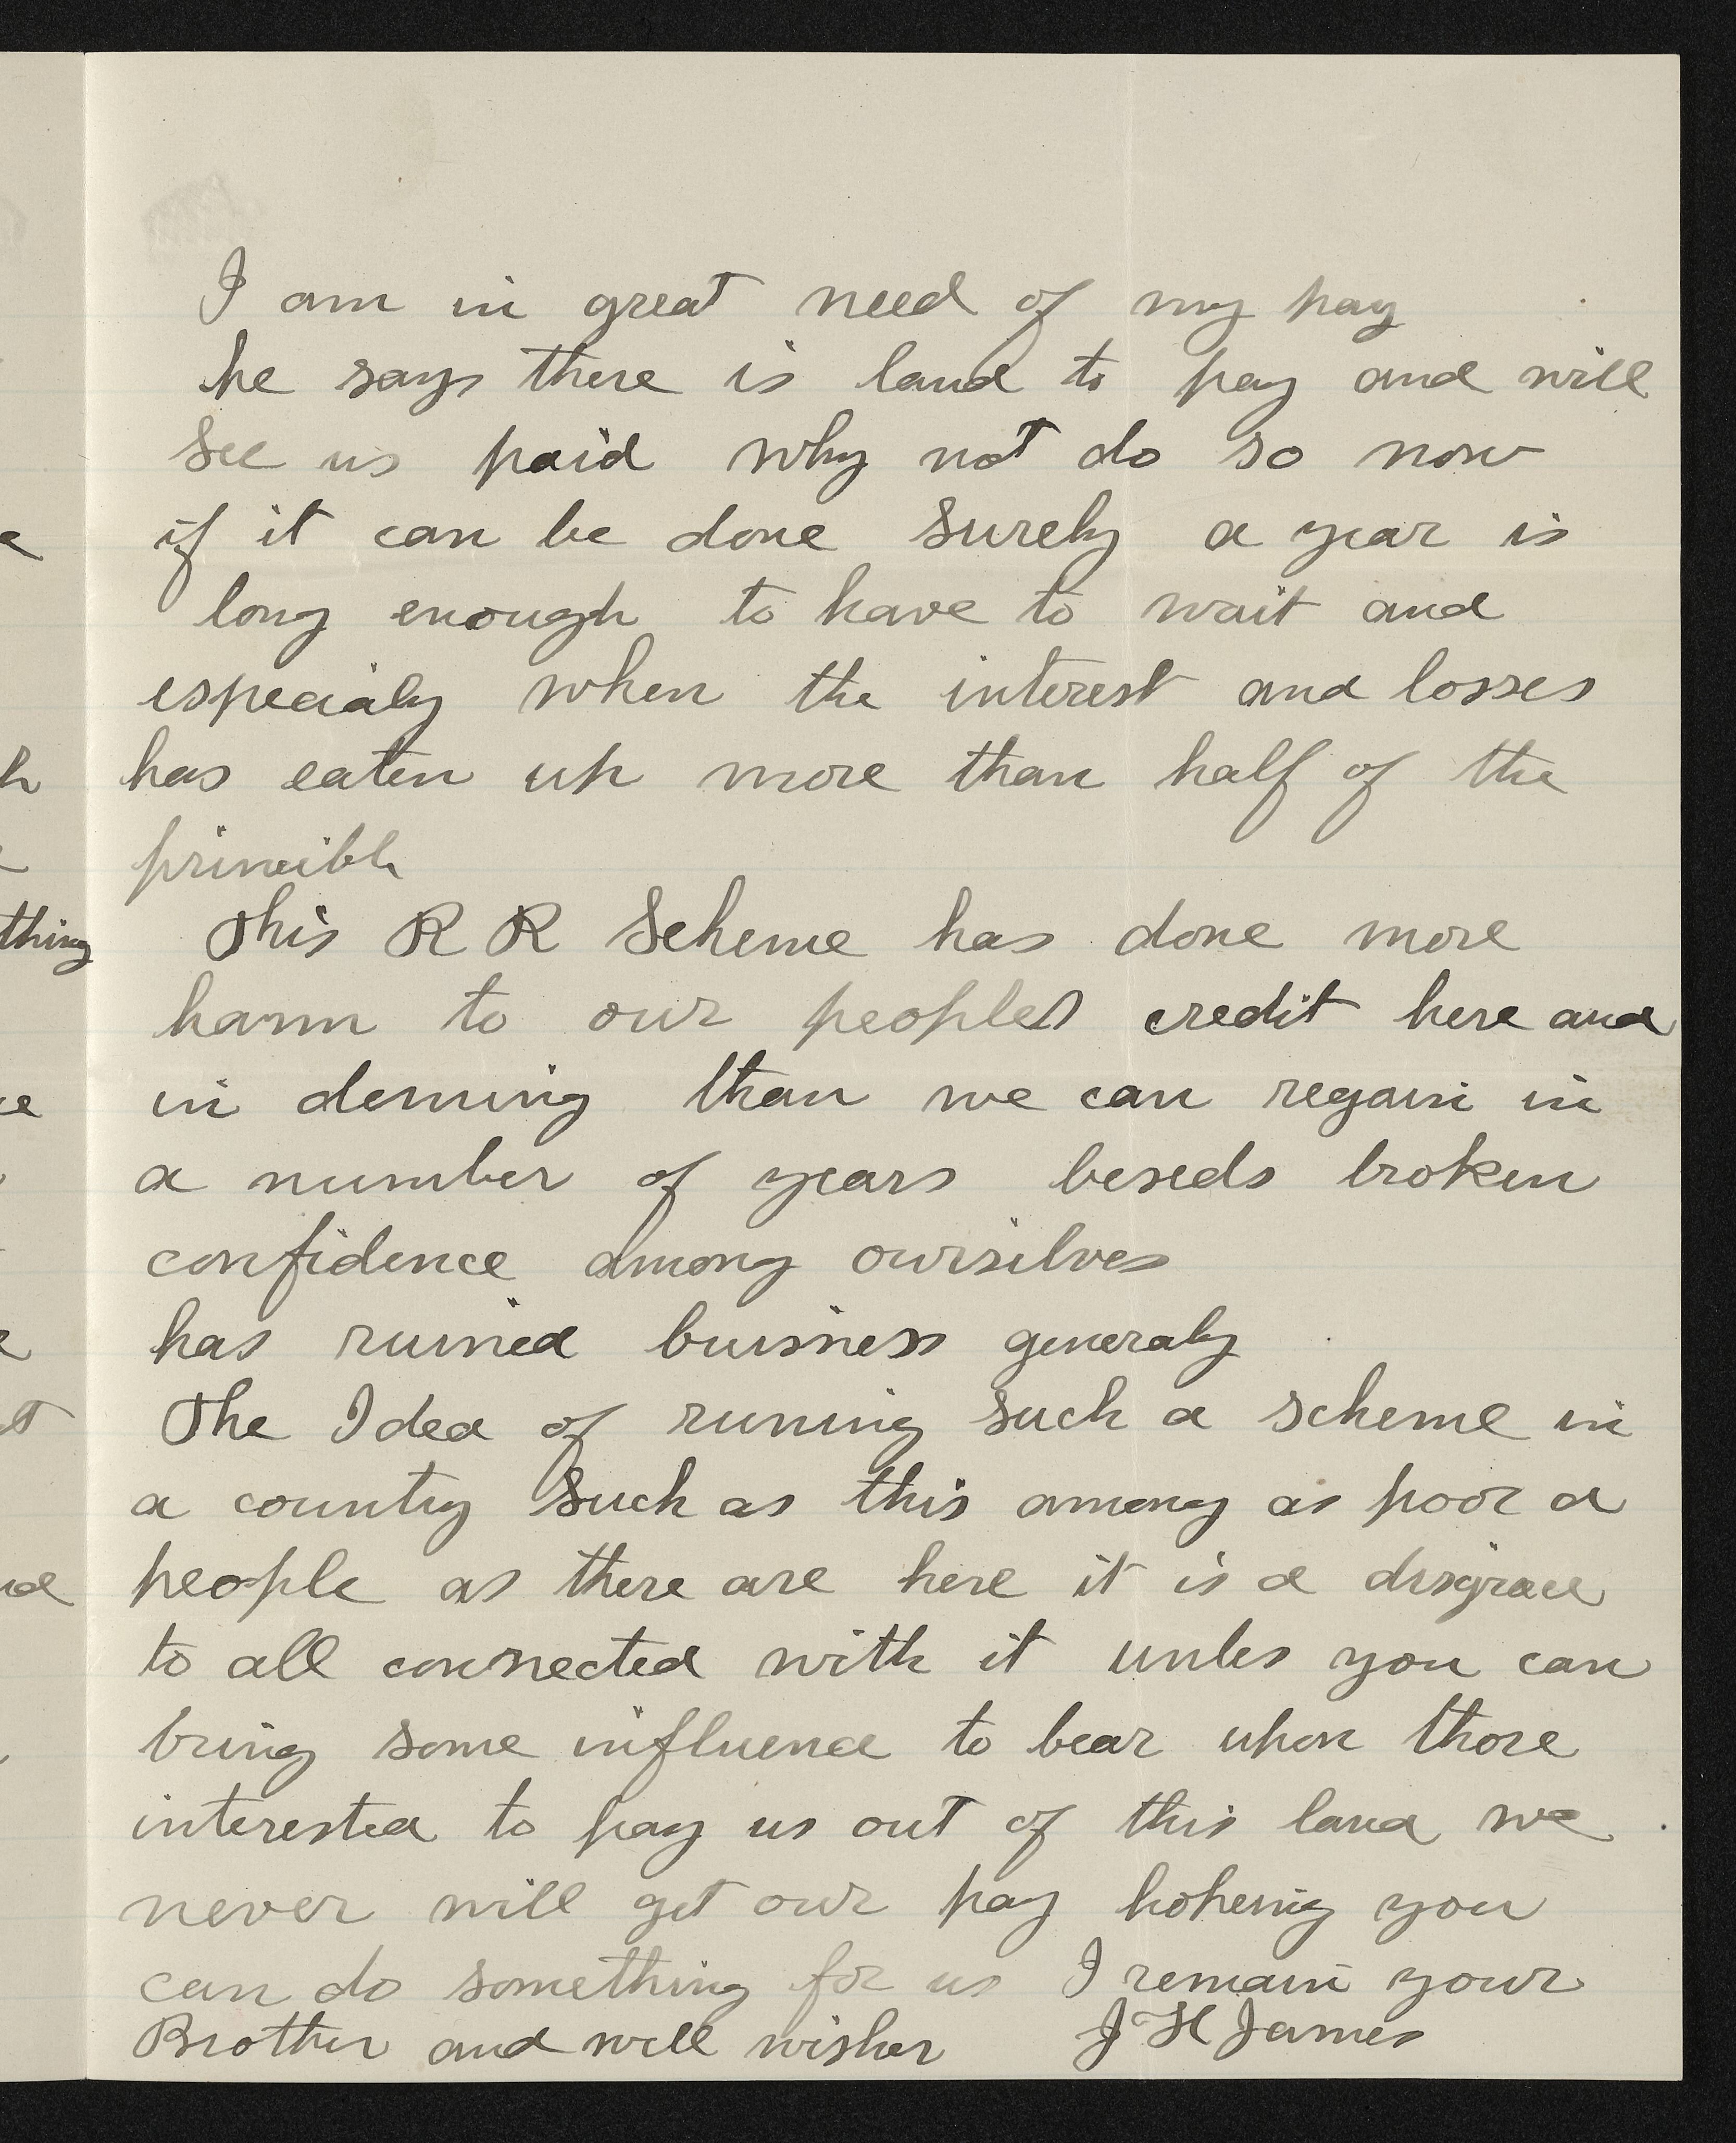 I am in great need of my pay
he says there is land to pay and will
See us paid why not do so now
if it can be done Surely a year is
long enough to have to wait and
especialy when the interest and losses
has eaten up more than half of the
principle
This R R Scheme has done more
harm to our peoples credit here and
in deming than we can regain in
a number of years beseds broken
confidence among ourselves
has ruined buisness generaly
The Idea of runing such a scheme in
a country Such as this among as poor a
people as there are here it is a disgrace
to all connected with it unles you can
bring some influence to bear upon those
interested to pay us out of this land we
never will get our pay hopeing you
can do something for us I remain your
Brother and well wisher J H James
thing